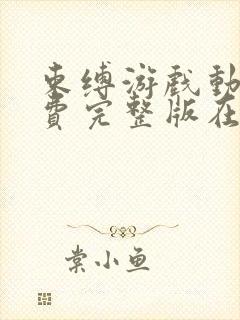 束缚游戏动
费完整版在
棠小鱼